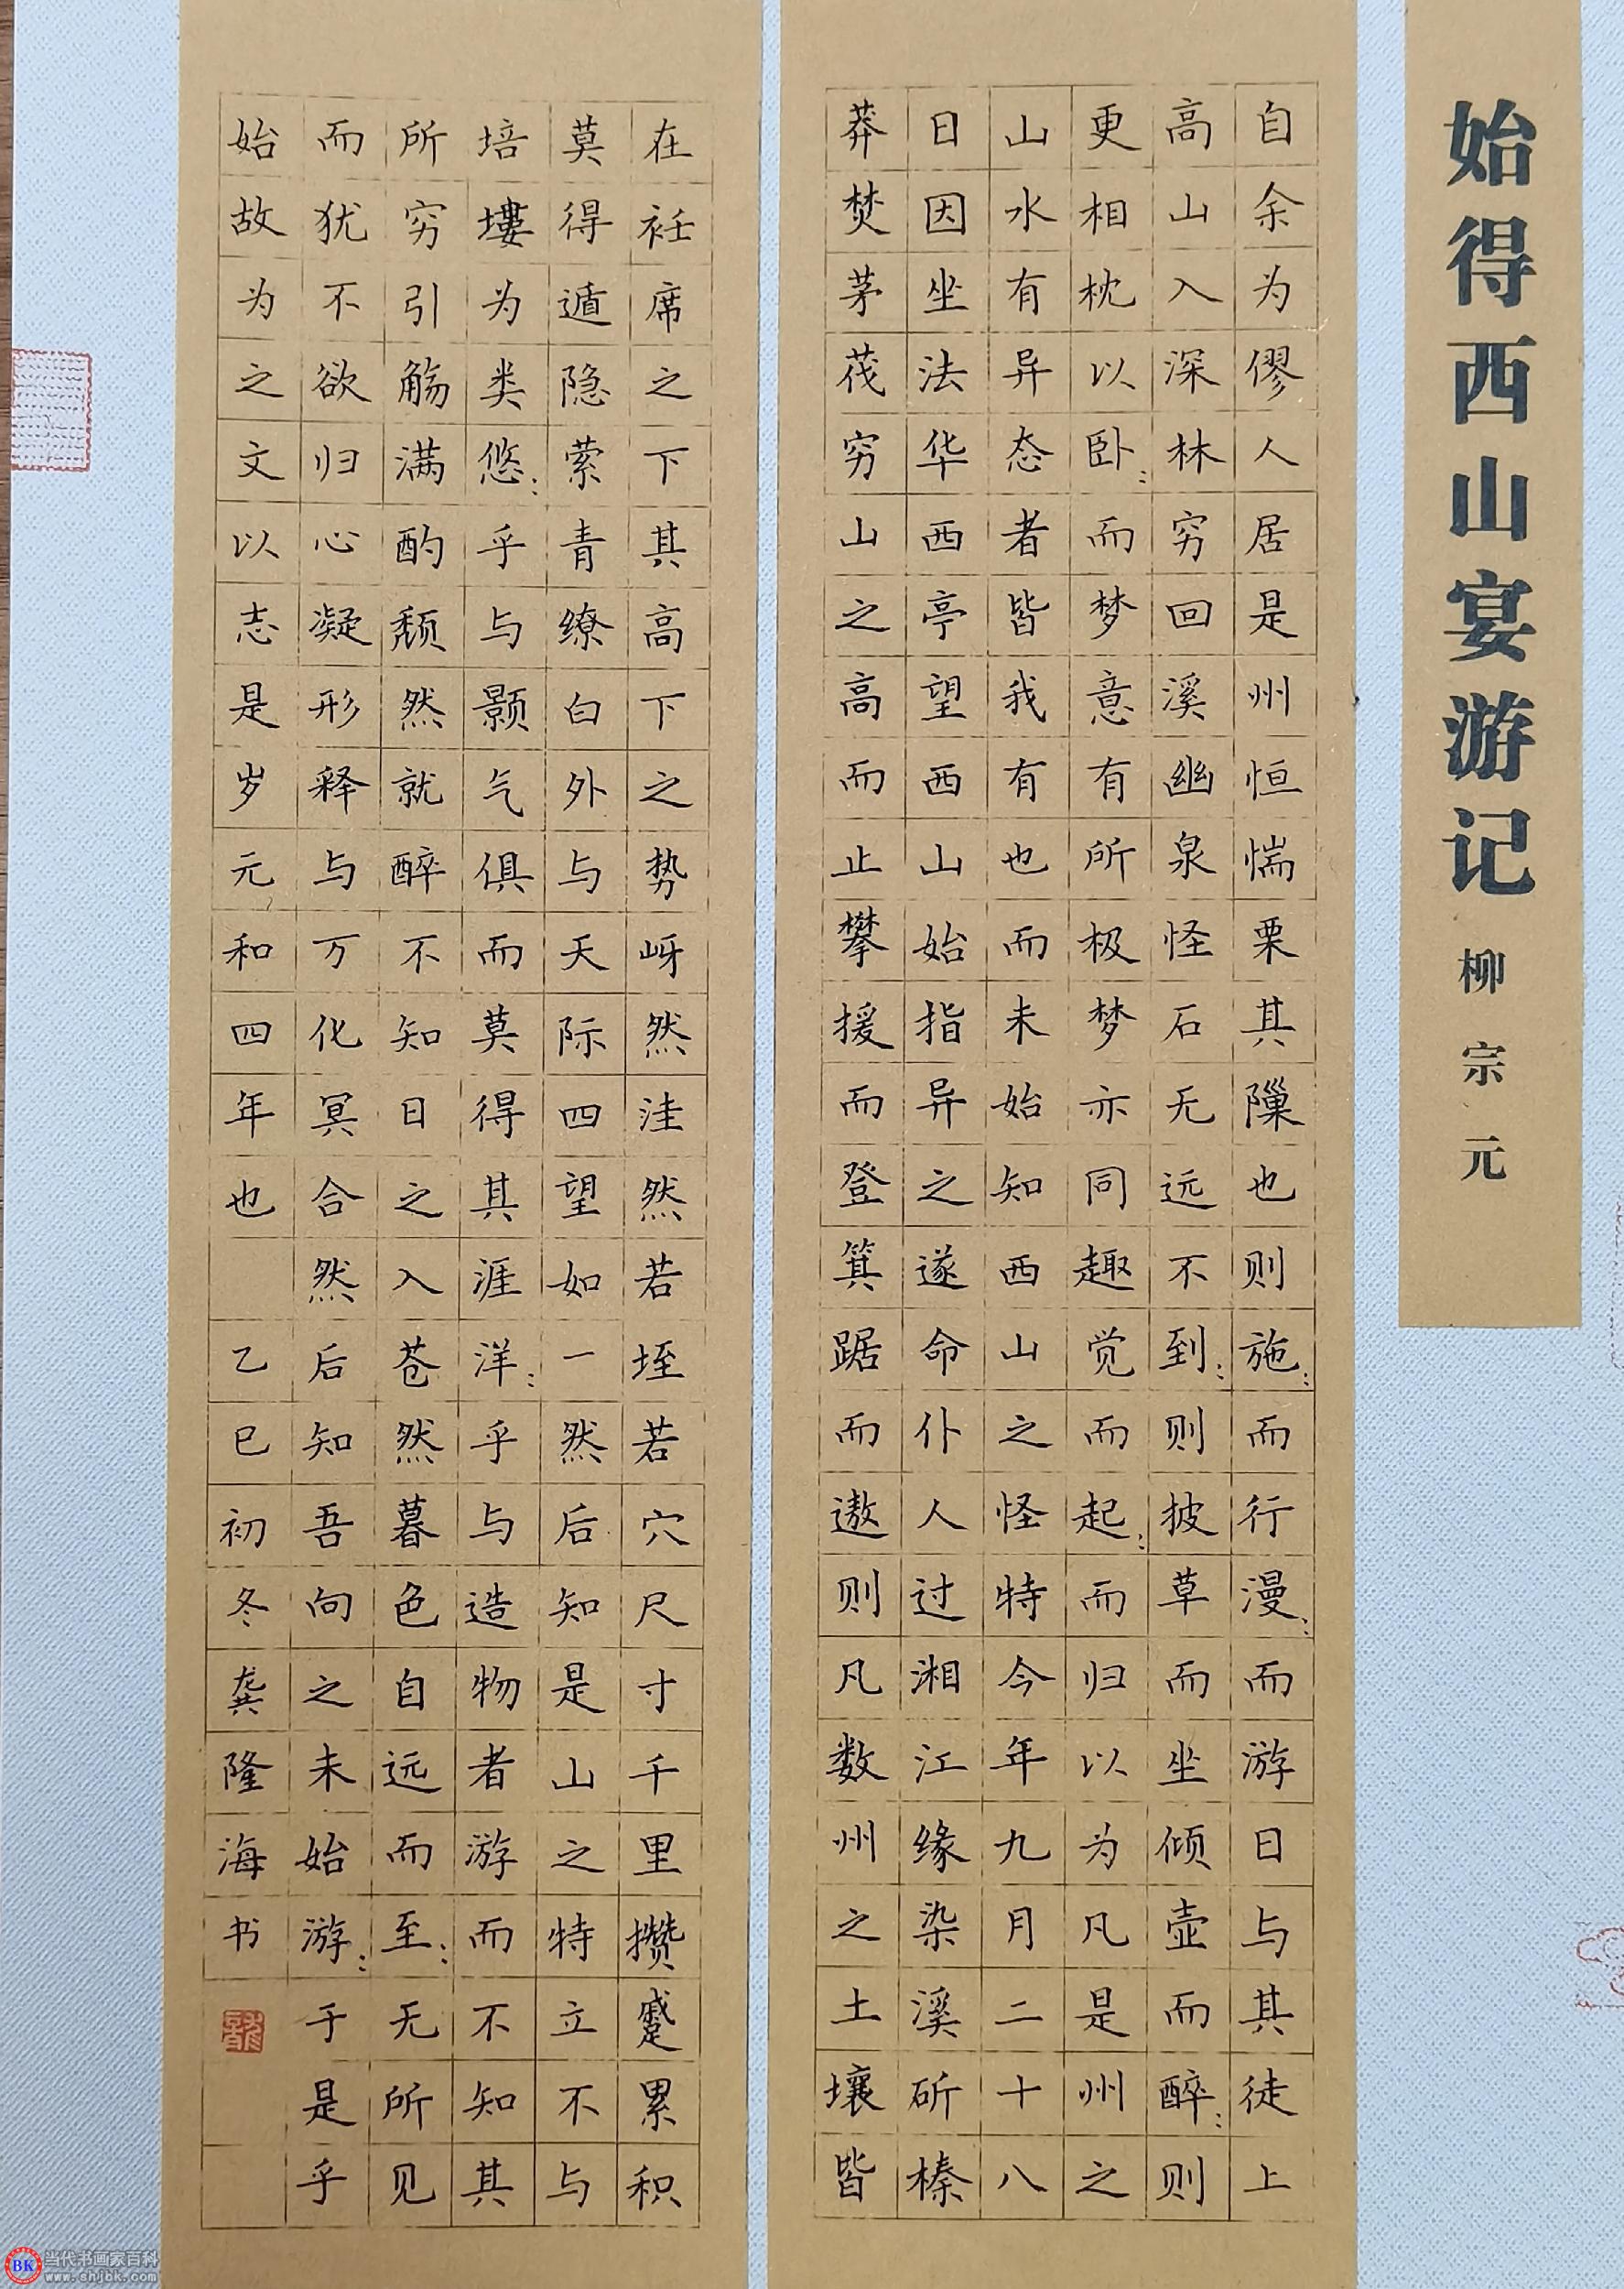 始得西山宴游记 柳宗元
自余为僇人居是州恒惴栗其隟也则施：而行漫：而游日与其徒上
高山入深林穷回溪幽泉怪石无远不到：则披草而坐倾壶而醉：则
更相枕以卧：而梦意有所极梦亦同趣觉而起：而归以为凡是州之
山水有异态者皆我有也而未始知西山之怪特今年九月二十八
日因坐法华西亭望西山始指异之遂命仆人过湘江缘染溪斫榛
莽焚茅茷穷山之高而止攀援而登箕踞而遨则凡数州之土壤皆
在衽席之下其高下之势岈然洼然若垤若穴尺寸千里攒蹙累积
莫得遁隐萦青缭白外与天际四望如一然后知是山之特立不与
培塿为类悠：乎与颢气俱而莫得其涯洋：乎与造物者游而不知其
所穷引觞满酌颓然就醉不知日之入苍然暮色自远而至：无所见
而犹不欲归心凝形释与万化冥合然后知吾向之未始游：于是乎
始故为之文以志是岁元和四年也 乙巳初冬龚隆海书
BK 当代书画家百科
www.shjbk.com